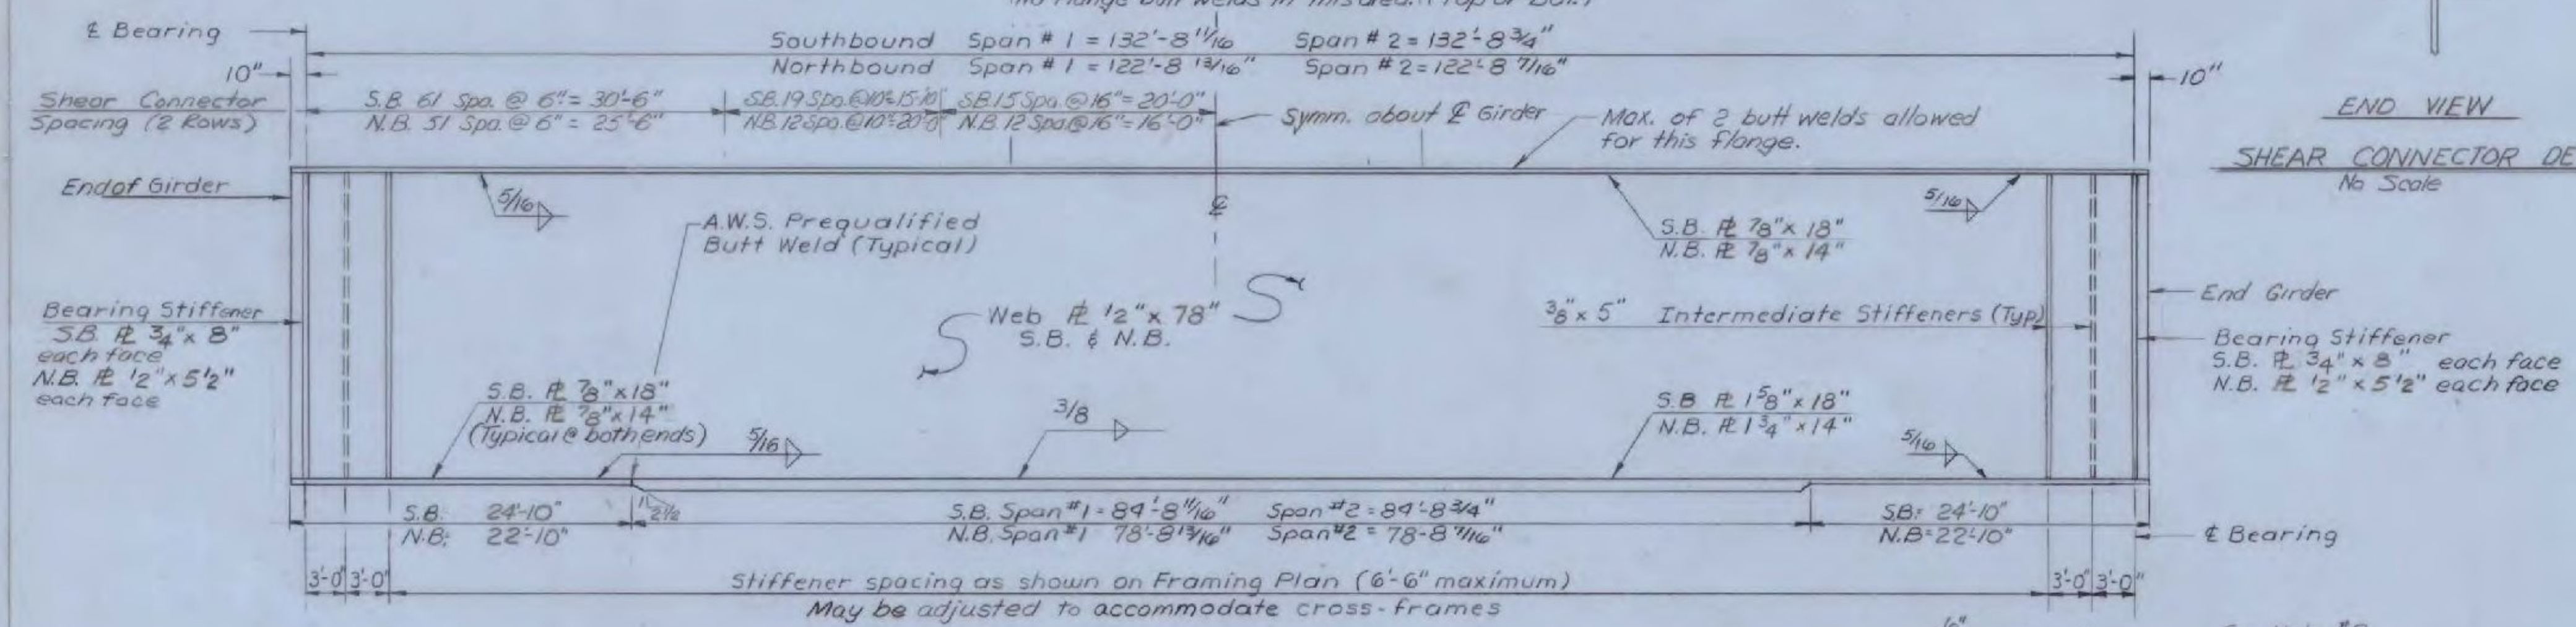 ℄ Bearing
Southbound Span # 1 = 132'-8 11/16" Span # 2 = 132'-8 3/4"
Northbound Span # 1 = 122'-8 13/16" Span # 2 = 122'-8 7/16"
10"
10"
Shear Connector
Spacing (2 Rows)
S.B. 61 Spa. @ 6" = 30'-6"
N.B. 51 Spa. @ 6" = 25'-6"
S.B. 19 Spa. @ 10" = 15'-10"
N.B. 12 Spa. @ 10" = 20'-0"
S.B. 15 Spa. @ 16" = 20'-0"
N.B. 12 Spa @ 16" = 16'-0"
Symm. about ℄ Girder
Max. of 2 butt welds allowed
for this flange.
END VIEW
SHEAR CONNECTOR DE
No Scale
End of Girder
5/16
A.W.S. Prequalified
Butt Weld (Typical)
℄
S.B. ⅊ 7/8" x 18"
N.B. ⅊ 7/8" x 14"
5/16
Bearing Stiffener
S.B. ⅊ 3/4" x 8"
each face
N.B. ⅊ 1/2" x 5 1/2"
each face
Web ⅊ 1/2" x 78"
S.B. & N.B.
3/8" x 5" Intermediate Stiffeners (Typ)
End Girder
Bearing Stiffener
S.B. ⅊ 3/4" x 8" each face
N.B. ⅊ 1/2" x 5 1/2" each face
S.B. ⅊ 7/8" x 18"
N.B. ⅊ 7/8" x 14"
(Typical @ both ends)
5/16
3/8
S.B ⅊ 1 5/8" x 18"
N.B. ⅊ 1 3/4" x 14"
5/16
S.B. 24'-10"
N.B. 22'-10"
1
2 1/2
S.B. Span #1 = 84'-8 11/16" Span #2 = 84'-8 3/4"
N.B. Span #1 78'-8 13/16" Span #2 = 78-8 7/16"
S.B. = 24'-10"
N.B = 22'-10"
℄ Bearing
3'-0" 3'-0"
Stiffener spacing as shown on Framing Plan (6'-6" maximum)
May be adjusted to accommodate cross-frames
3'-0" 3'-0"